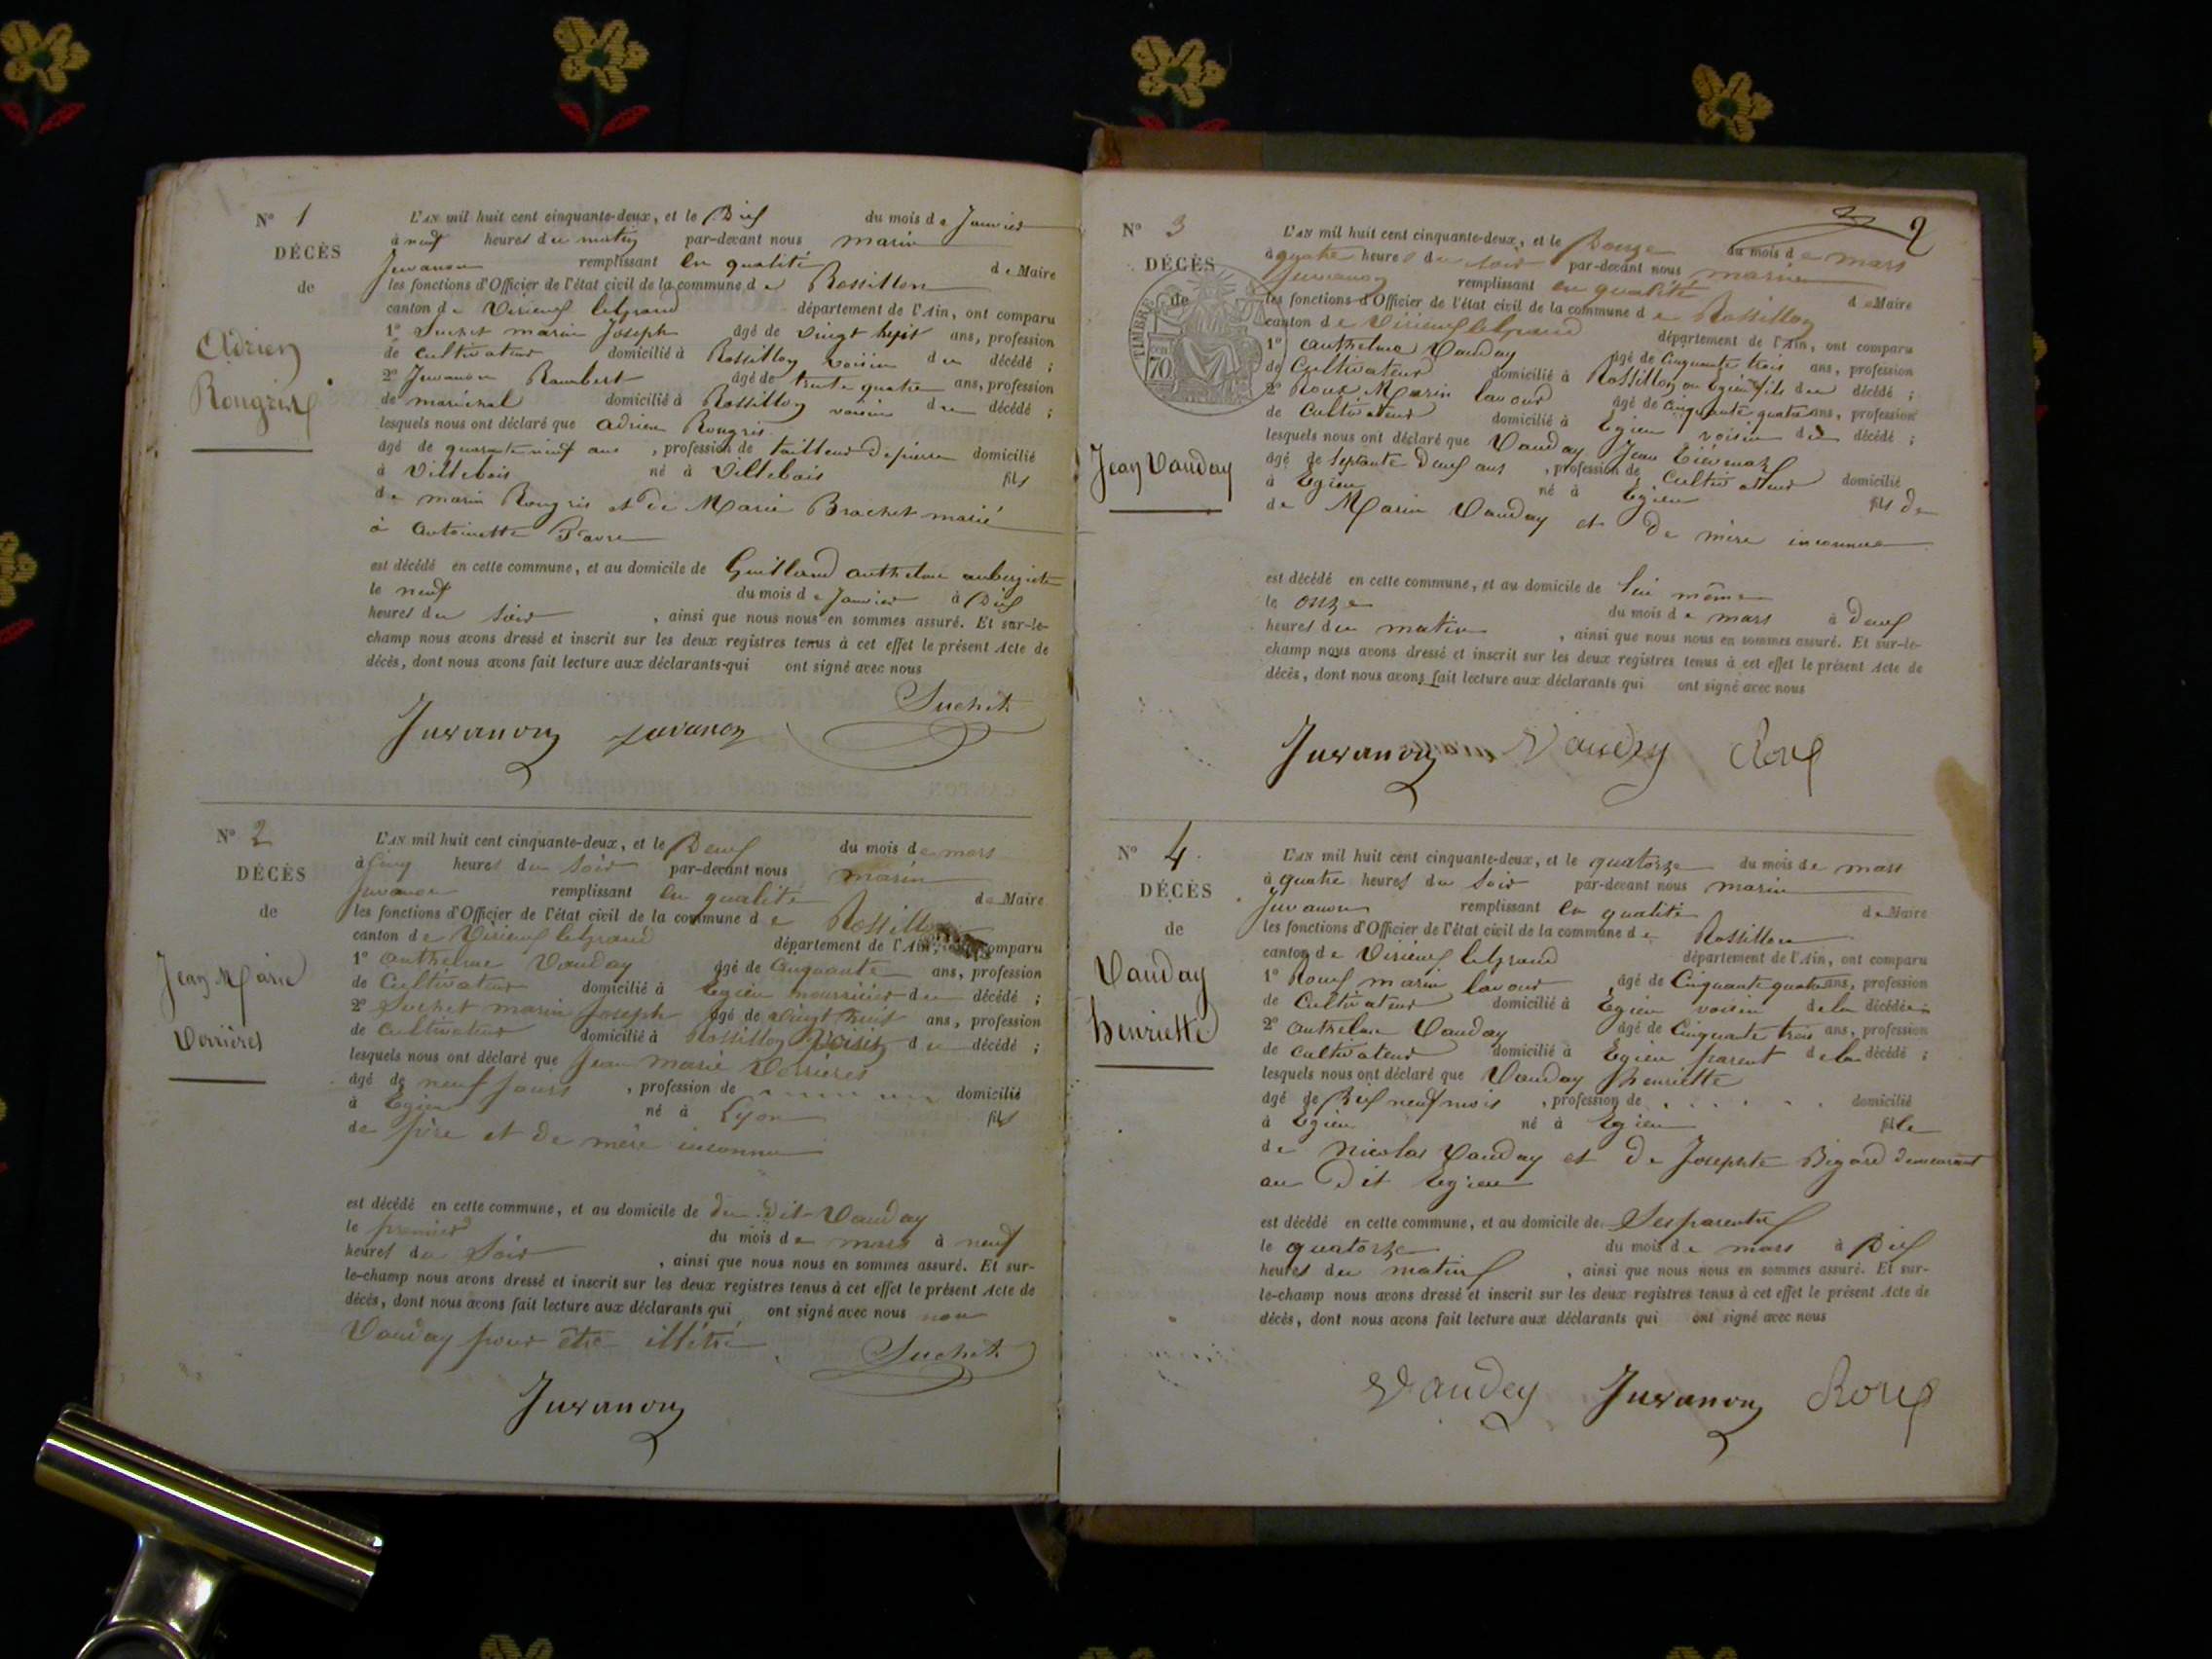 N° 1
DÉCÈS
de
Adrien
Rougris
L'AN mil huit cent cinquante-deux, et le Dix du mois de Janvier
à neuf heures du matin par-devant nous marin
Juvanon remplissant en qualité de Maire
les fonctions d'Officier de l'état civil de la commune de Rossillon
canton de Virieu le grand département de l'Ain, ont comparu
1° Suchet marin Joseph âgé de vingt huit ans, profession
de Cultivateur domicilié à Rossillon voisin du décédé ;
2° Juvanon Rambert âgé de trente quatre ans, profession
de maréchal domicilié à Rossillon voisin du décédé ;
lesquels nous ont déclaré que adrien Rougris
âgé de quarante neuf ans , profession de tailleur de pierre domicilié
à Villebois né à Villebois fils
de marin Rougris et de Marie Brachet marié
à Antoinette Favre
est décédé en cette commune, et au domicile de Guilland anthelme aubergiste
le neuf du mois de Janvier à Dix
heures du soir , ainsi que nous nous en sommes assuré. Et sur-le-
champ nous avons dressé et inscrit sur les deux registres tenus à cet effet le présent Acte de
décès, dont nous avons fait lecture aux déclarants qui ont signé avec nous
Suchet
Juvanon juvanon
N° 2
DÉCÈS
de
Jean Marie
Verrières
L'AN mil huit cent cinquante-deux, et le Deux du mois de mars
à Cinq heures du soir par-devant nous marin
Juvanon remplissant en qualité de Maire
les fonctions d'Officier de l'état civil de la commune de Rossillon
canton de Virieu le grand département de l'Ain, comparu
1° anthelme Vauday âgé de Cinquante ans, profession
de Cultivateur domicilié à Egieu nourricier du décédé ;
2° Suchet marin Joseph âgé de vingt huit ans, profession
de cultivateur domicilié à Rossillon voisin du décédé ;
lesquels nous ont déclaré que Jean marie Verrières
âgé de neuf jours , profession de domicilié
à Egieu né à Lyon fils
de père et de mère inconnu
est décédé en cette commune, et au domicile de du dit Vauday
le premier du mois de mars à neuf
heures du Soir , ainsi que nous nous en sommes assuré. Et sur-
le-champ nous avons dressé et inscrit sur les deux registres tenus à cet effet le présent Acte de
décès, dont nous avons fait lecture aux déclarants qui ont signé avec nous non
Vauday pour être illétré
Suchet
Juvanon
2
N° 3
DÉCÈS
de
TIMBRE
70
Jean Vauday
L'AN mil huit cent cinquante-deux, et le Douze du mois de mars
à quatre heures du soir par-devant nous marin
Juvanon remplissant en qualité de Maire
les fonctions d'Officier de l'état civil de la commune de Rossillon
canton de Virieu le grand département de l'Ain, ont comparu
1° anthelme Vauday âgé de Cinquante trois ans, profession
de Cultivateur domicilié à Rossillon ou Egieu fils du décédé ;
2° Roux Marin lavour âgé de Cinquante quatre ans, profession
de Cultivateur domicilié à Egieu voisin du décédé ;
lesquels nous ont déclaré que Vauday Jean
âgé de Septante Deux ans , profession de Cultivateur domicilié
à Egieu né à Egieu fils de
de Marin Vauday et De mère inconnue
est décédé en cette commune, et au domicile de lui même
le onze du mois de mars à Deux
heures du matin , ainsi que nous nous en sommes assuré. Et sur-le-
champ nous avons dressé et inscrit sur les deux registres tenus à cet effet le présent Acte de
décès, dont nous avons fait lecture aux déclarants qui ont signé avec nous
Juvanon Vauday Roux
N° 4
DÉCÈS
de
Vauday
henriette
L'AN mil huit cent cinquante-deux, et le quatorze du mois de mars
à quatre heures du soir par-devant nous marin
Juvanon remplissant en qualité de Maire
les fonctions d'Officier de l'état civil de la commune de Rossillon
canton de Virieu le grand département de l'Ain, ont comparu
1° Roux marin lavour âgé de Cinquante quatre ans, profession
de Cultivateur domicilié à Egieu voisin de la décédée ;
2° anthelme Vauday âgé de Cinquante trois ans, profession
de cultivateur domicilié à Egieu parent de la décédé ;
lesquels nous ont déclaré que Vauday henriette
âgé de Dix neuf mois , profession de domicilié
à Egieu né à Egieu fille
de Nicolas Vauday et de Josephte Bigard demeurant
au Dit Egieu
est décédé en cette commune, et au domicile de Ses parents
le quatorze du mois de mars à Dix
heures du matin , ainsi que nous nous en sommes assuré. Et sur-
le-champ nous avons dressé et inscrit sur les deux registres tenus à cet effet le présent Acte de
décès, dont nous avons fait lecture aux déclarants qui ont signé avec nous
Vauday Juvanon Roux